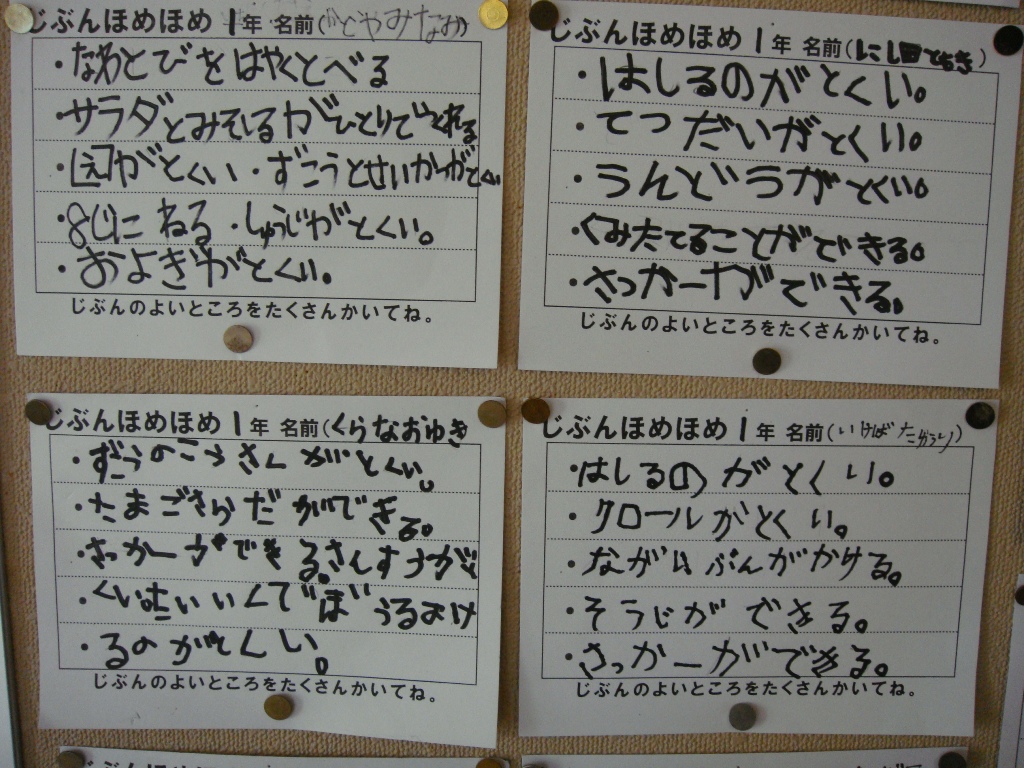 じぶんほめほめ 1年 名前(かどやみなみ)
・なわとびをはやくとべる
・サラダとみそしるがひとりでつくれる
・えがとくい ・ずこうとせいかつがとくい
・8じにねる ・しゅうじがとくい。
・およぎがとくい。
じぶんのよいところをたくさんかいてね。
じぶんほめほめ 1年 名前(にし田ともき)
・はしるのがとくい。
・てつだいがとくい。
・うんどうがとくい。
・くみたてることができる。
・さっかーがができる。
じぶんのよいところをたくさんかいてね。
じぶんほめほめ 1年 名前(くらなおゆき
・ずこうのこうさくがとくい。
・たまごさらだができる。
・さっかーができる。さんすうがと
・くい いくでぼうるおけ
・るのがとくい。
じぶんのよいところをたくさんかいてね。
じぶんほめほめ 1年 名前(いけばたかろり)
・はしるのがとくい。
・クロールがとくい。
・ながいぶんがかける。
・そうじができる。
・さっかーができる。
じぶんのよいところをたくさんかいてね。
じぶんほめほめ